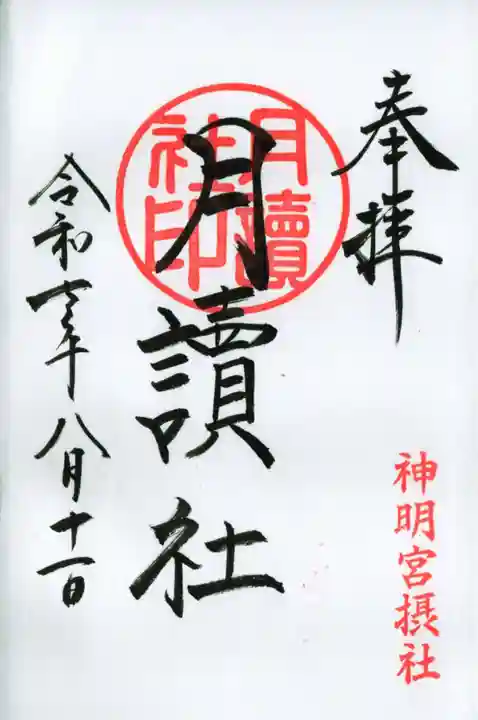 奉拝
神明宮摂社
月讀社印
月讀社
令和 年八月十一日